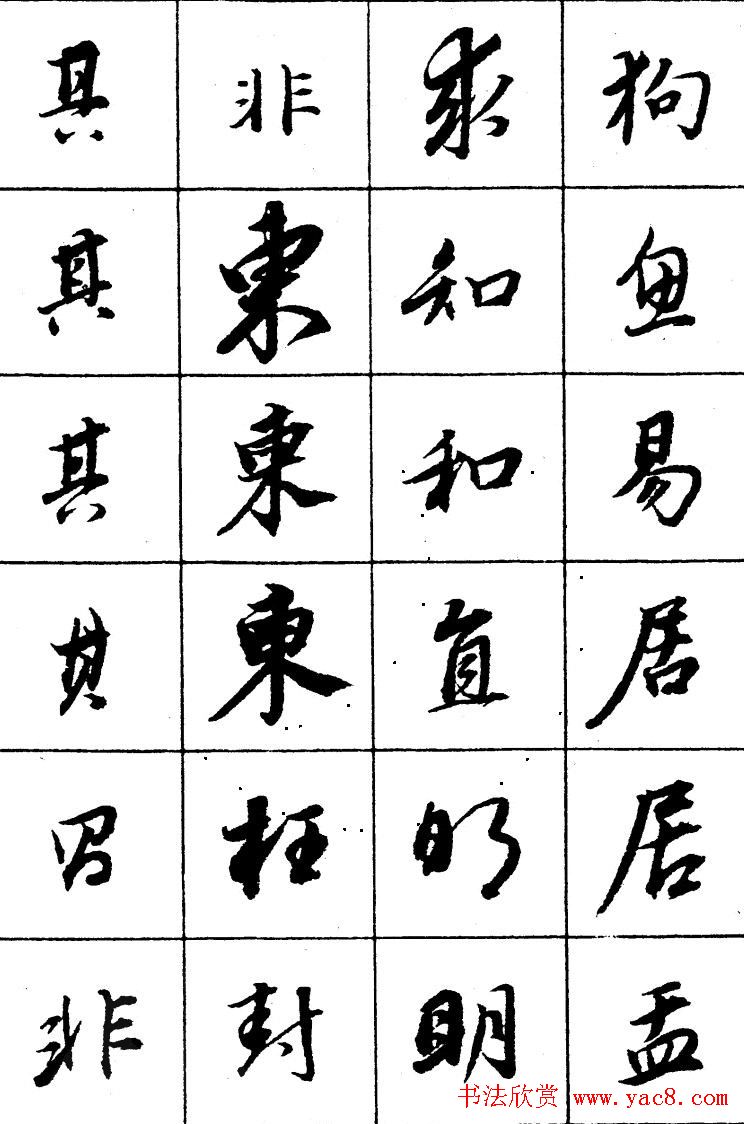 其其其其非
非東東東枉封
求知和直明明
狗易居居孟
书法欣赏 www.yac8.com